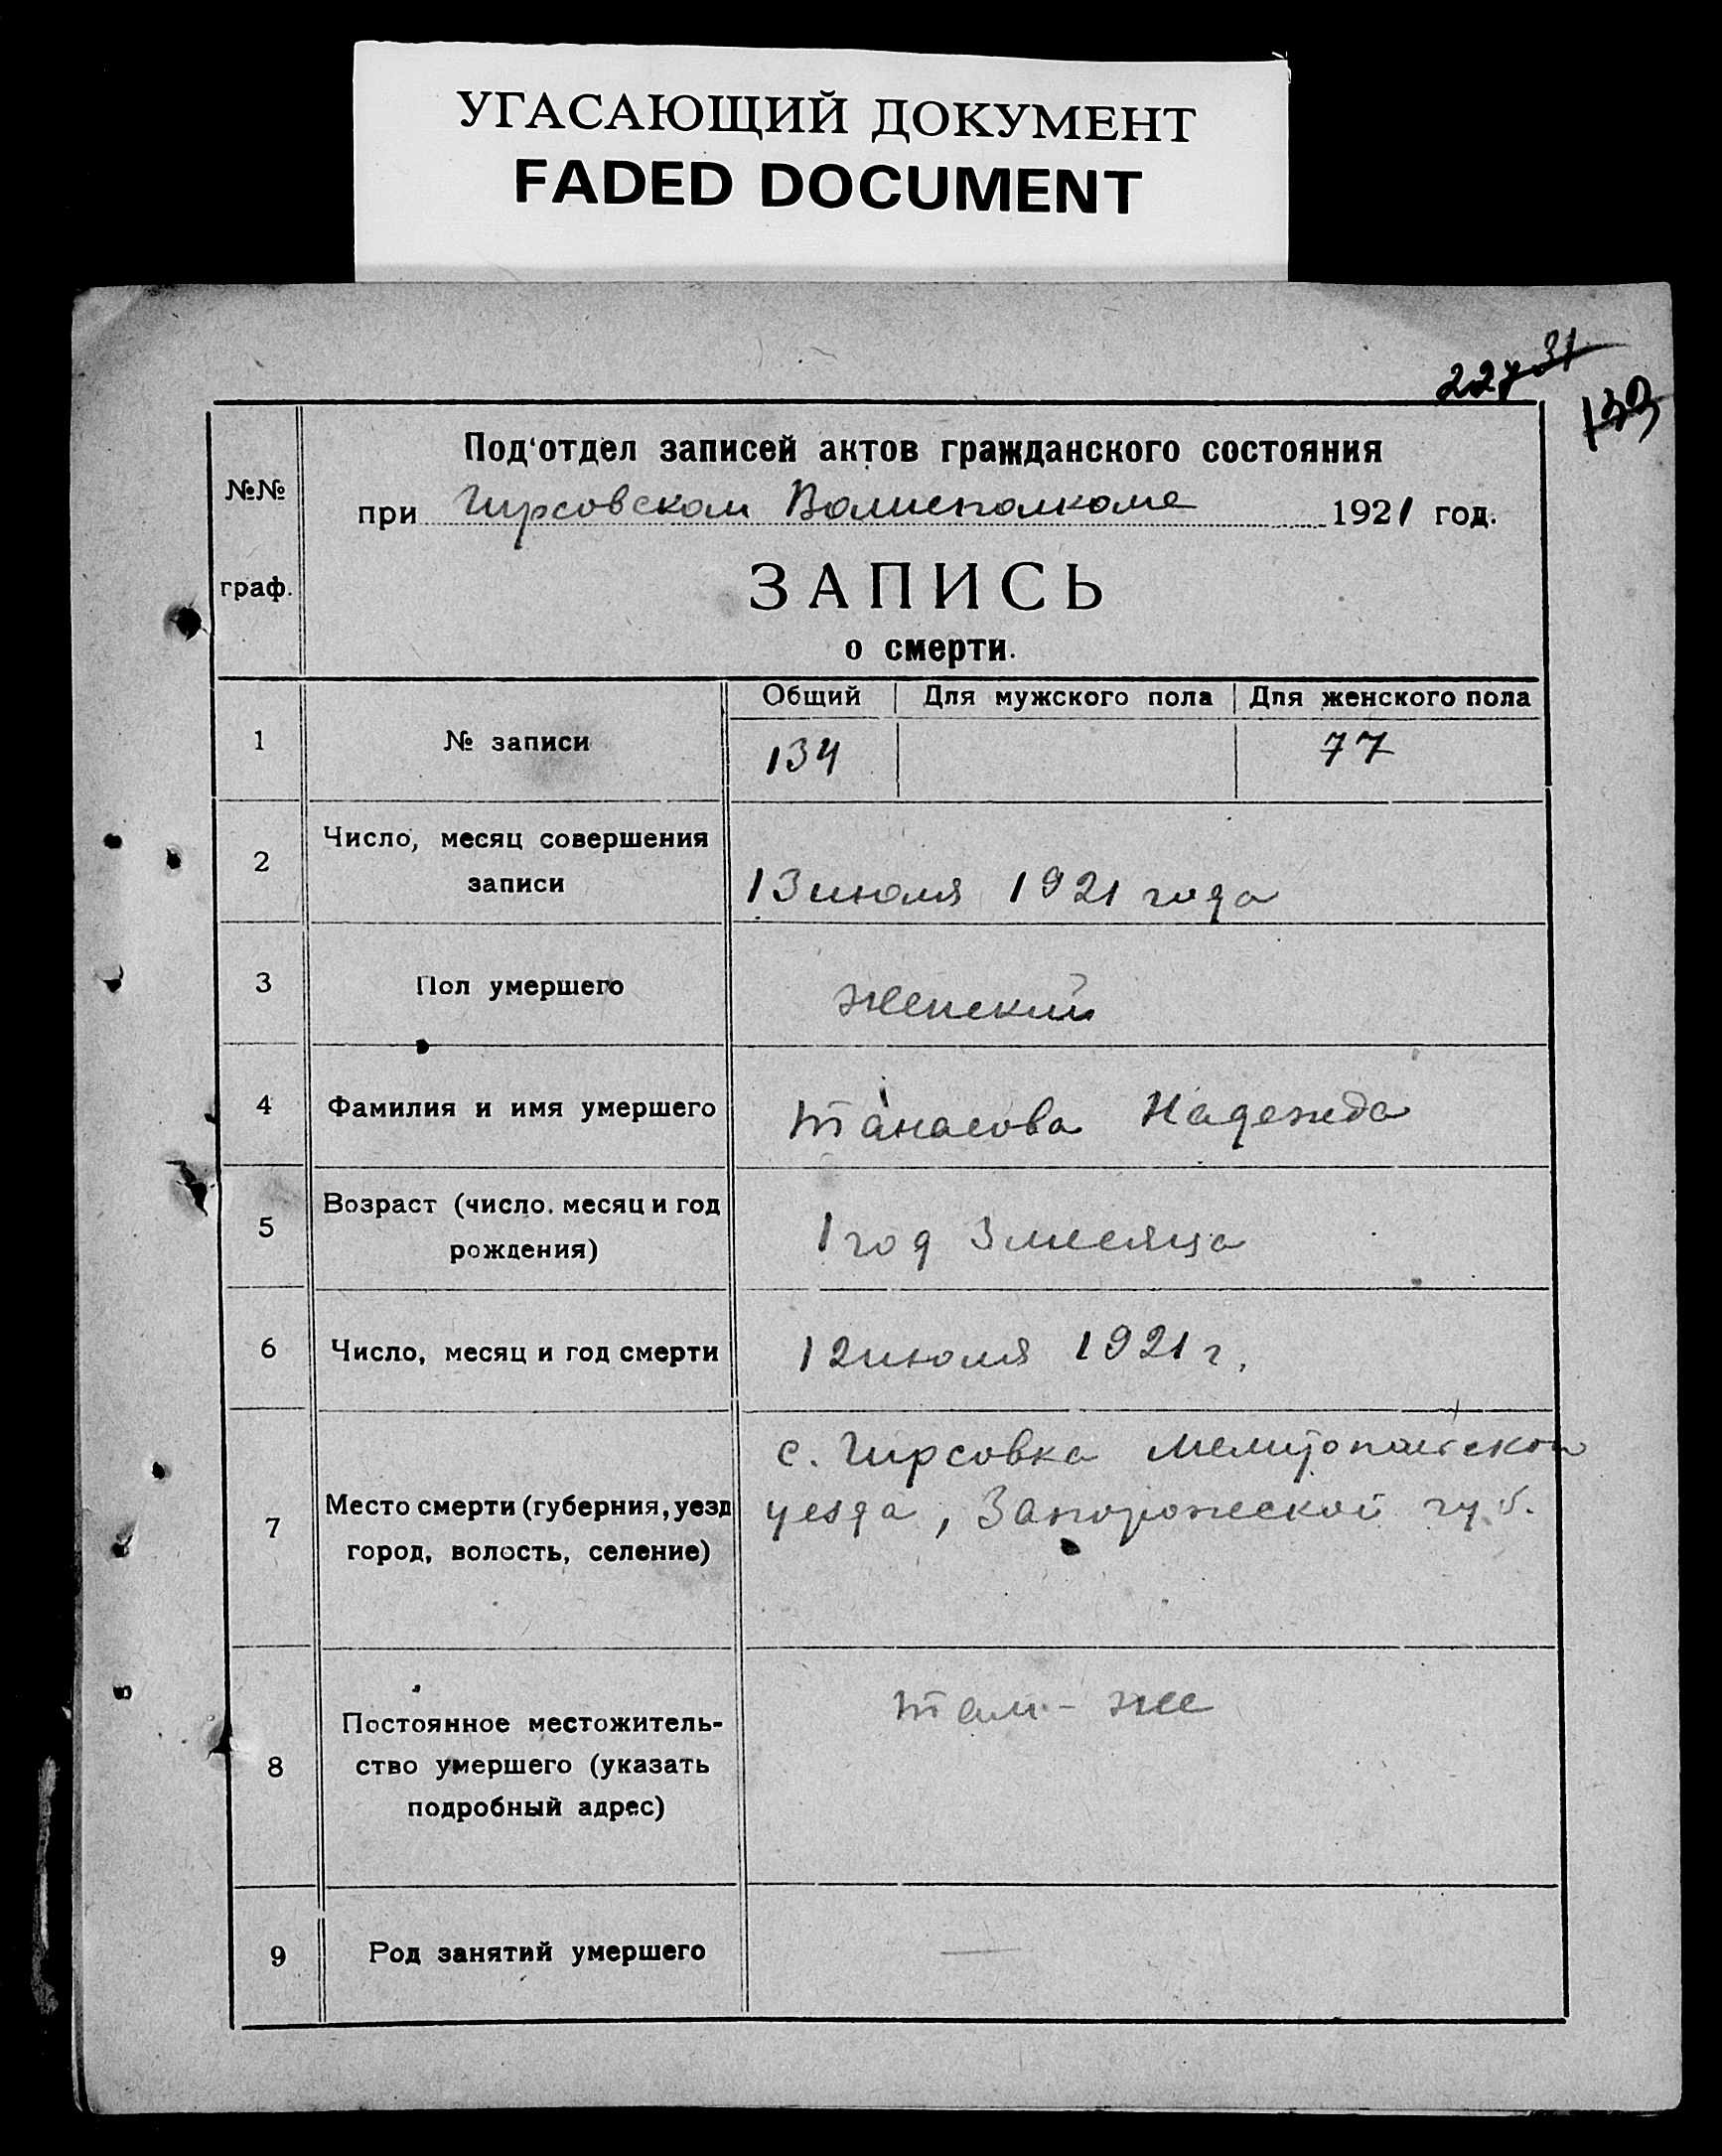 УГАСАЮЩИЙ ДОКУМЕНТ
FADED DOCUMENT
227 31
133
№№
граф.
Под'отдел записей актов гражданского состояния
при Гирсовском Волисполкоме 1921 год.
ЗАПИСЬ
о смерти.
Общий Для мужского пола Для женского пола
1 № записи 134 77
2 Число, месяц совершения
записи 13 июля 1921 года
3 Пол умершего женский
4 Фамилия и имя умершего Танасова Надежда
5 Возраст (число. месяц и год
рождения) 1 год 3 месяца
6 Число, месяц и год смерти 12 июля 1921 г.
с. Гирсовка Мелитопольской
7 Место смерти (губерния, уезд уезда, Запорожской губ.
город, волость, селение)
Там-же
8 Постоянное местожитель-
ство умершего (указать
подробный адрес)
9 Род занятий умершего —